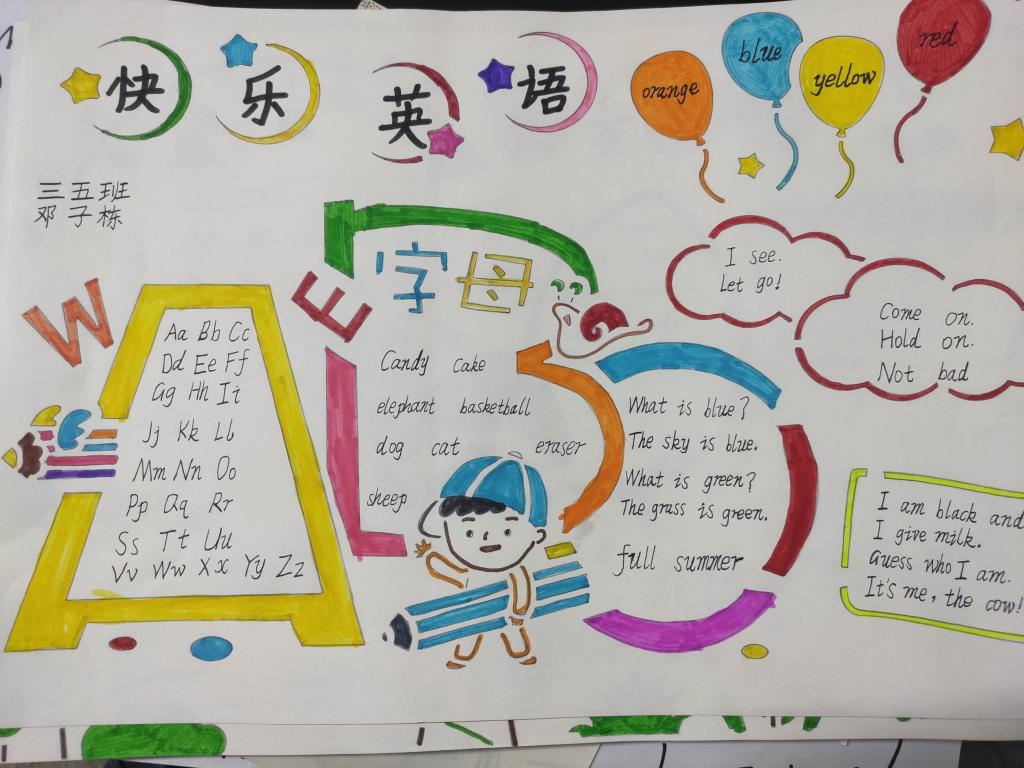 快乐英语
orange
blue
yellow
red
三五班
邓子栋
W
E
字母
Aa Bb Cc
Dd Ee Ff
Gg Hh Ii
Jj Kk Ll
Mm Nn Oo
Pp Qq Rr
Ss Tt Uu
Vv Ww Xx Yy Zz
Candy cake
elephant basketball
dog cat eraser
sheep
I see.
Let go!
Come on.
Hold on.
Not bad
What is blue?
The sky is blue.
What is green?
The grass is green.
full summer
I am black and
I give milk.
Guess who I am.
It's me, the cow!